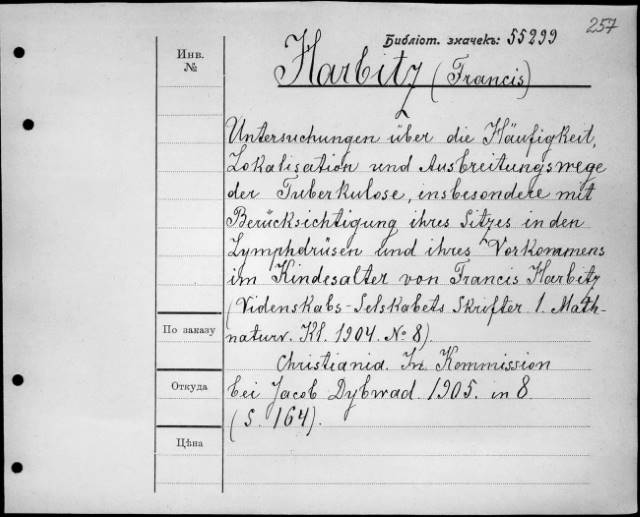 257
Библіот. значекъ: 55299
Инв.
№
Harbitz (Francis)
Untersuchungen über die Häufigkeit,
Lokalisation und Ausbreitungswege
der Tuberkulose, insbesondere mit
Berücksichtigung ihres Sitzes in den
Lymphdrüsen und ihres Vorkommens
im Kindesalter von Francis Harbitz
(Videnskabs-Selskabets Skrifter 1. Math-
По заказу
naturv. Kl. 1904. No 8).
Christiania. In Kommission
Откуда
bei Jacob Dybwad. 1905. in 8.
(S. 164).
Цѣна